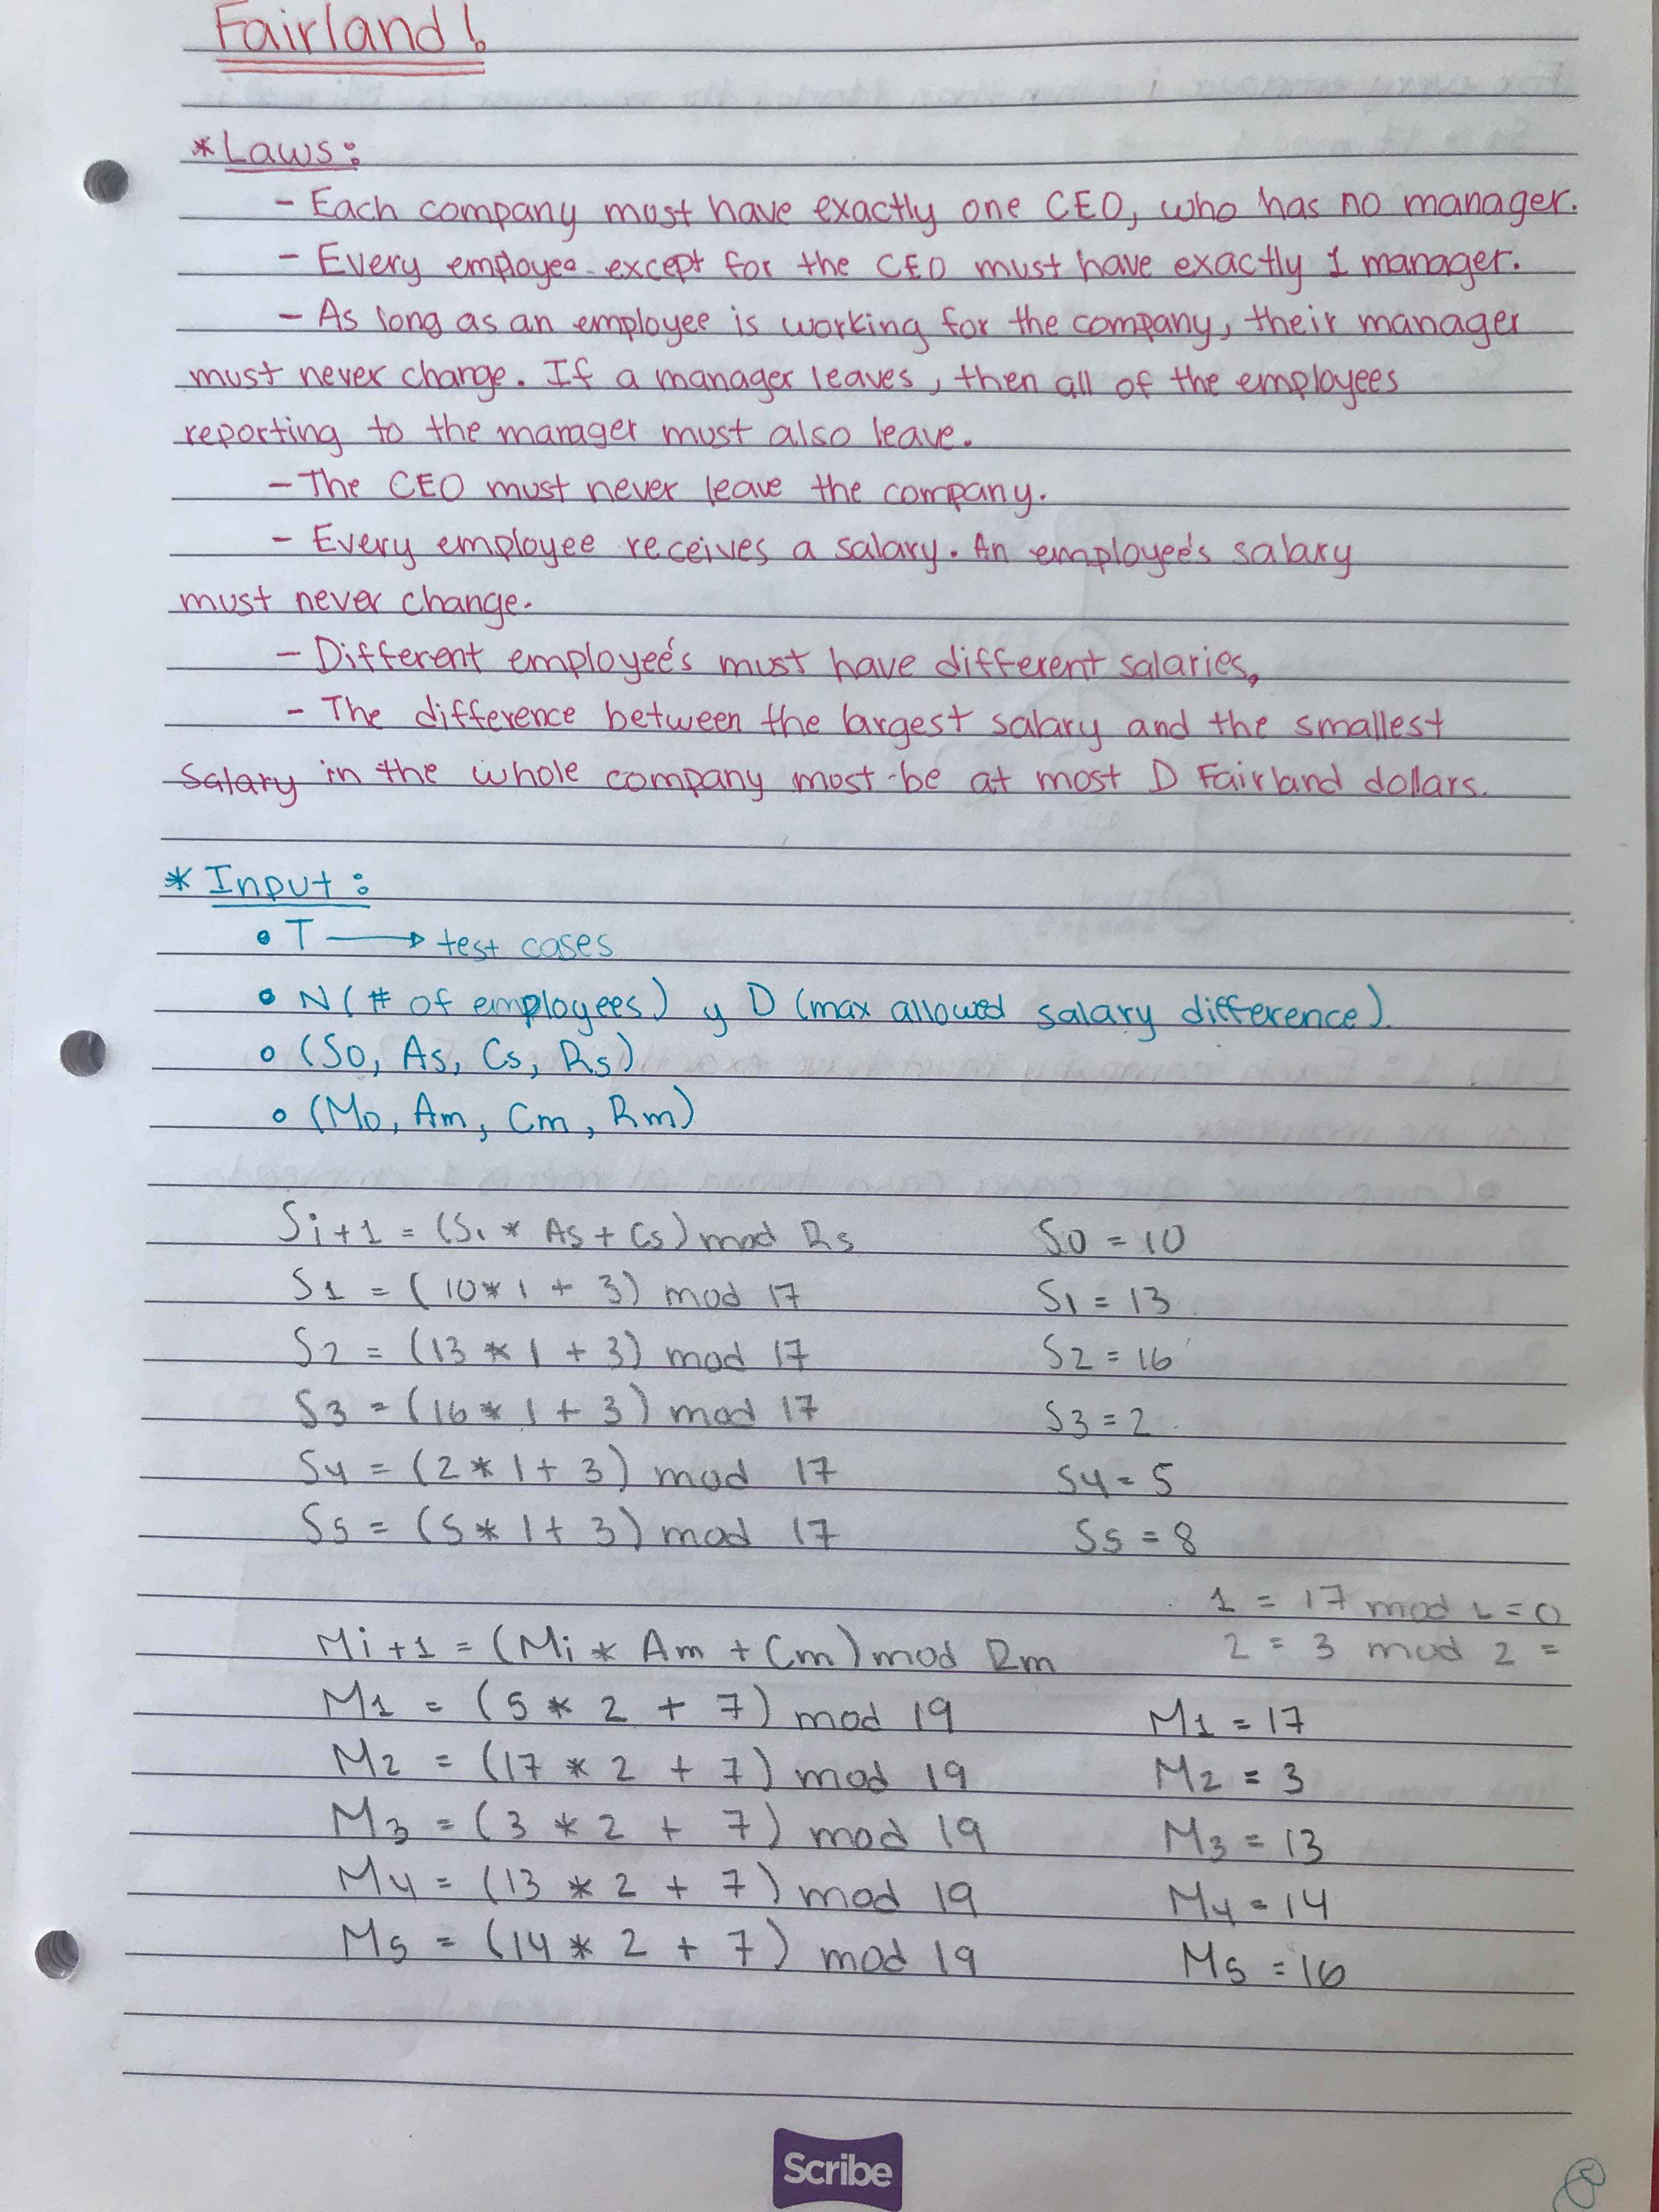 Fairland!
* Laws:
- Each company must have exactly one CEO, who has no manager.
- Every employee except for the CEO must have exactly 1 manager.
- As long as an employee is working for the company, their manager
must never change. If a manager leaves, then all of the employees
reporting to the manager must also leave.
- The CEO must never leave the company.
- Every employee receives a salary. An employee's salary
must never change.
- Different employee's must have different salaries,
- The difference between the largest salary and the smallest
salary in the whole company must be at most D Fairland dollars.
* Input:
• T → test cases
• N (# of employees) y D (max allowed salary difference)
• (So, As, Cs, Rs)
• (Mo, Am, Cm, Rm)
Si+1 = (Si * As + Cs) mod Rs S0 = 10
S1 = (10 * 1 + 3) mod 17 S1 = 13
S2 = (13 * 1 + 3) mod 17 S2 = 16
S3 = (16 * 1 + 3) mod 17 S3 = 2
S4 = (2 * 1 + 3) mod 17 S4 = 5
S5 = (5 * 1 + 3) mod 17 S5 = 8
1 = 17 mod 1 = 0
Mi+1 = (Mi * Am + Cm) mod Rm 2 = 3 mod 2 =
M1 = (5 * 2 + 7) mod 19 M1 = 17
M2 = (17 * 2 + 7) mod 19 M2 = 3
M3 = (3 * 2 + 7) mod 19 M3 = 13
M4 = (13 * 2 + 7) mod 19 M4 = 14
M5 = (14 * 2 + 7) mod 19 M5 = 16
Scribe